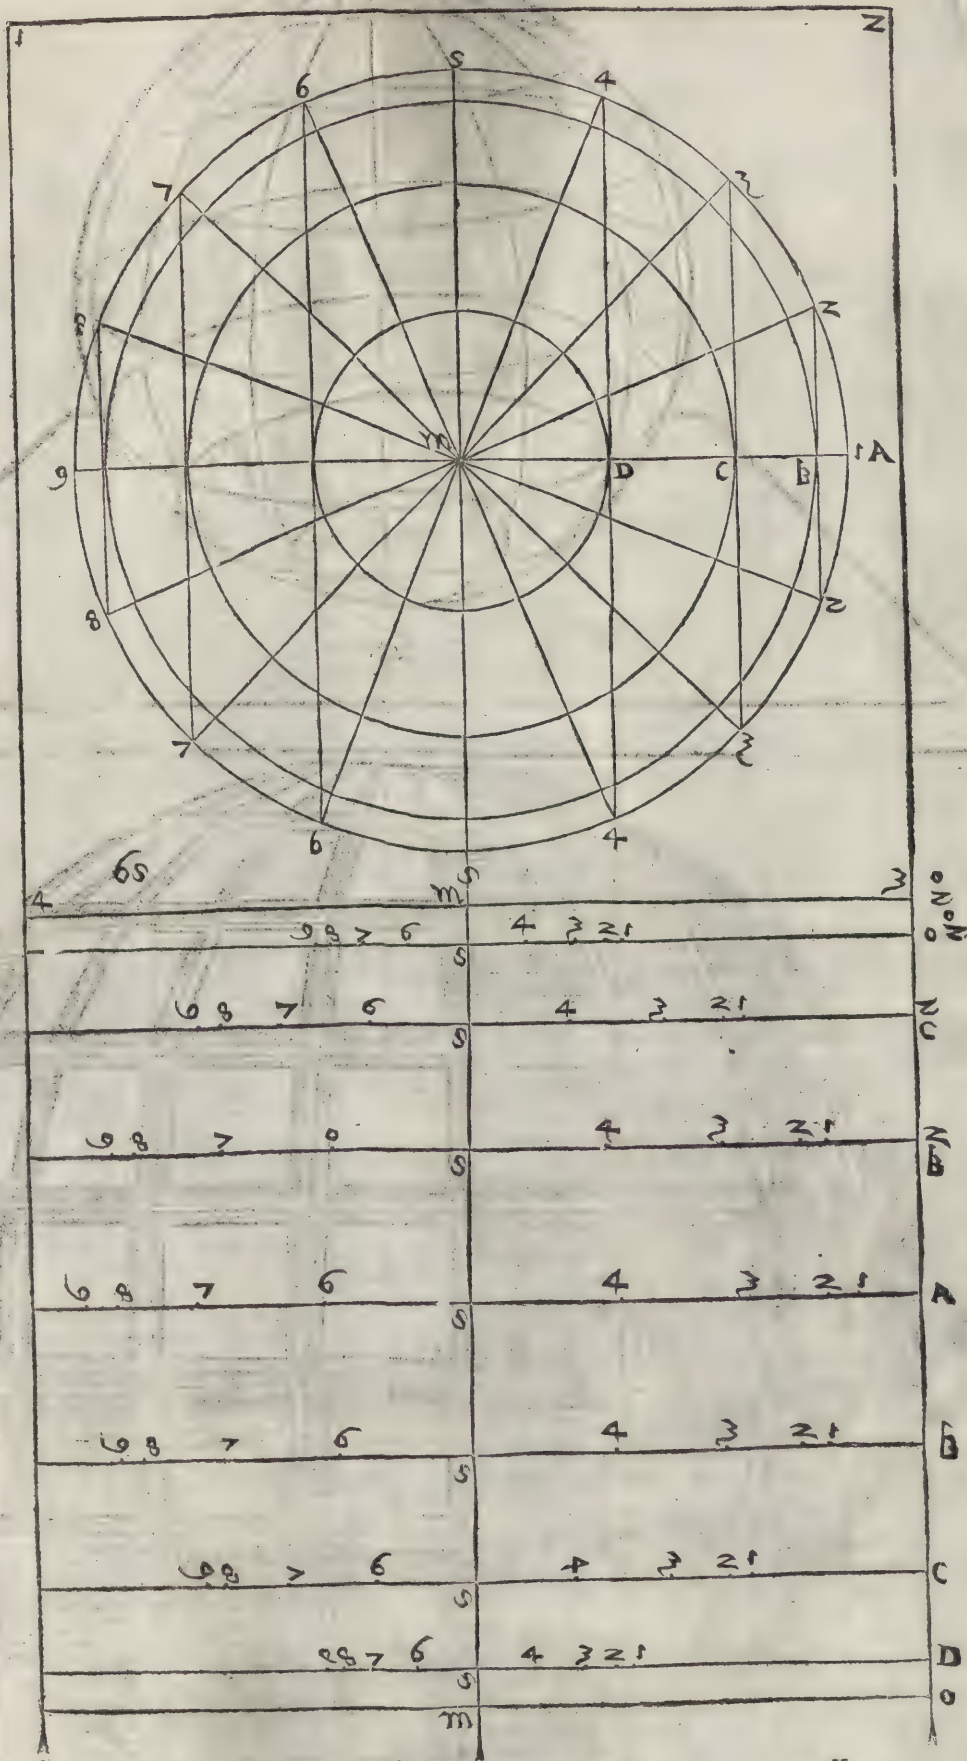 1 2
5
6 4
7 3
8 2
m
9 D C B 1 A
8 2
7 3
6 4
65 5
4 m 3
9 8 7 6 5 4 3 2 1
9 8 7 6 5 4 3 2 1 C
9 8 7 5 4 3 2 1 B
9 8 7 6 5 4 3 2 1 A
9 8 7 6 5 4 3 2 1 B
9 8 7 6 5 4 3 2 1 C
9 8 7 6 5 4 3 2 1 D
m o